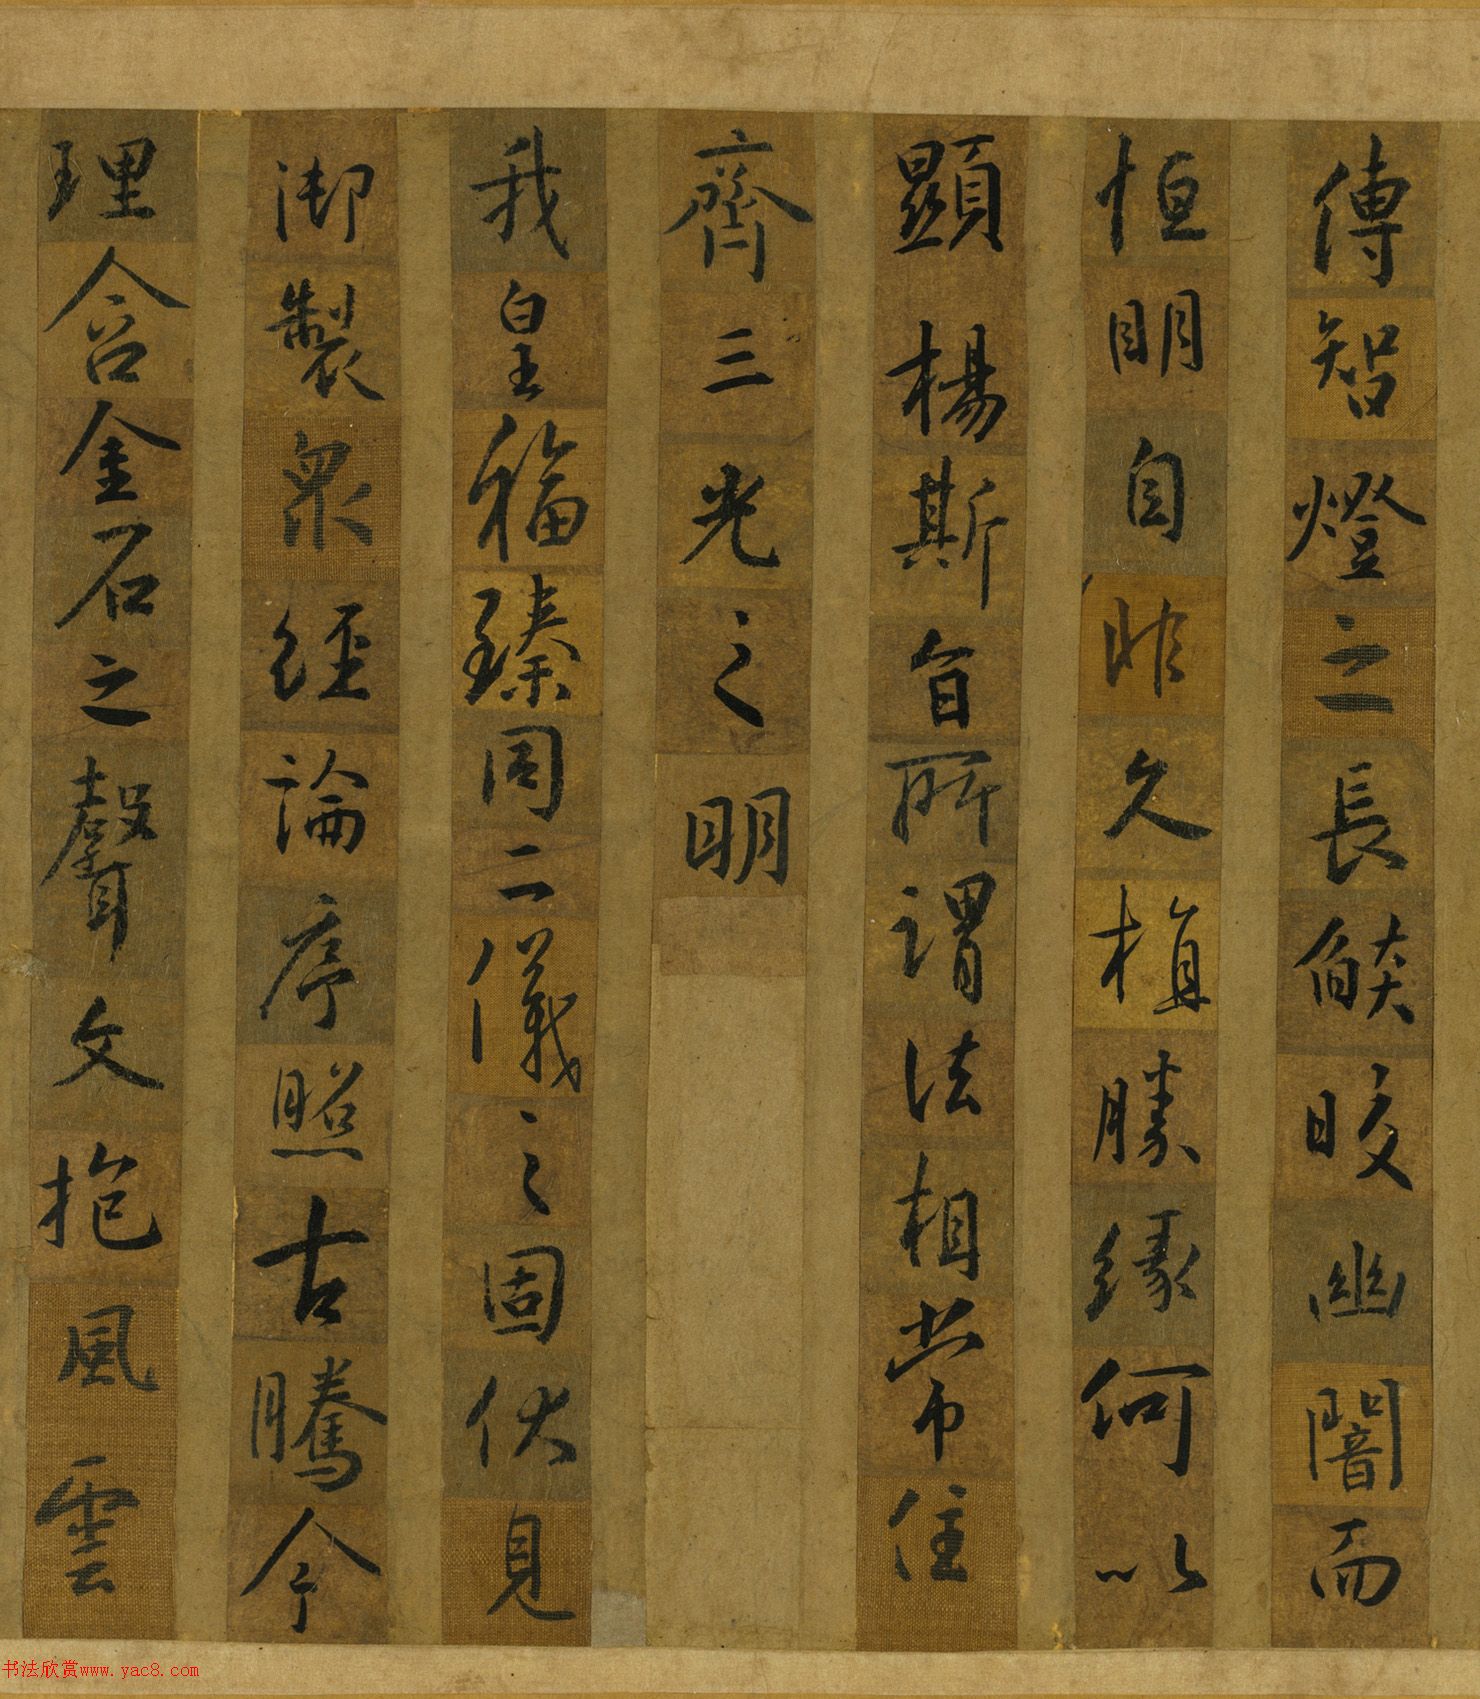 傳智燈之長燄皎幽闇而
恒明自非久植勝緣何以
顯楊斯旨所謂法相常住
齊三光之明
我皇福臻同二儀之固伏見
御製眾經論序照古騰今
理含金石之聲文抱風雲
书法欣赏www.yac8.com